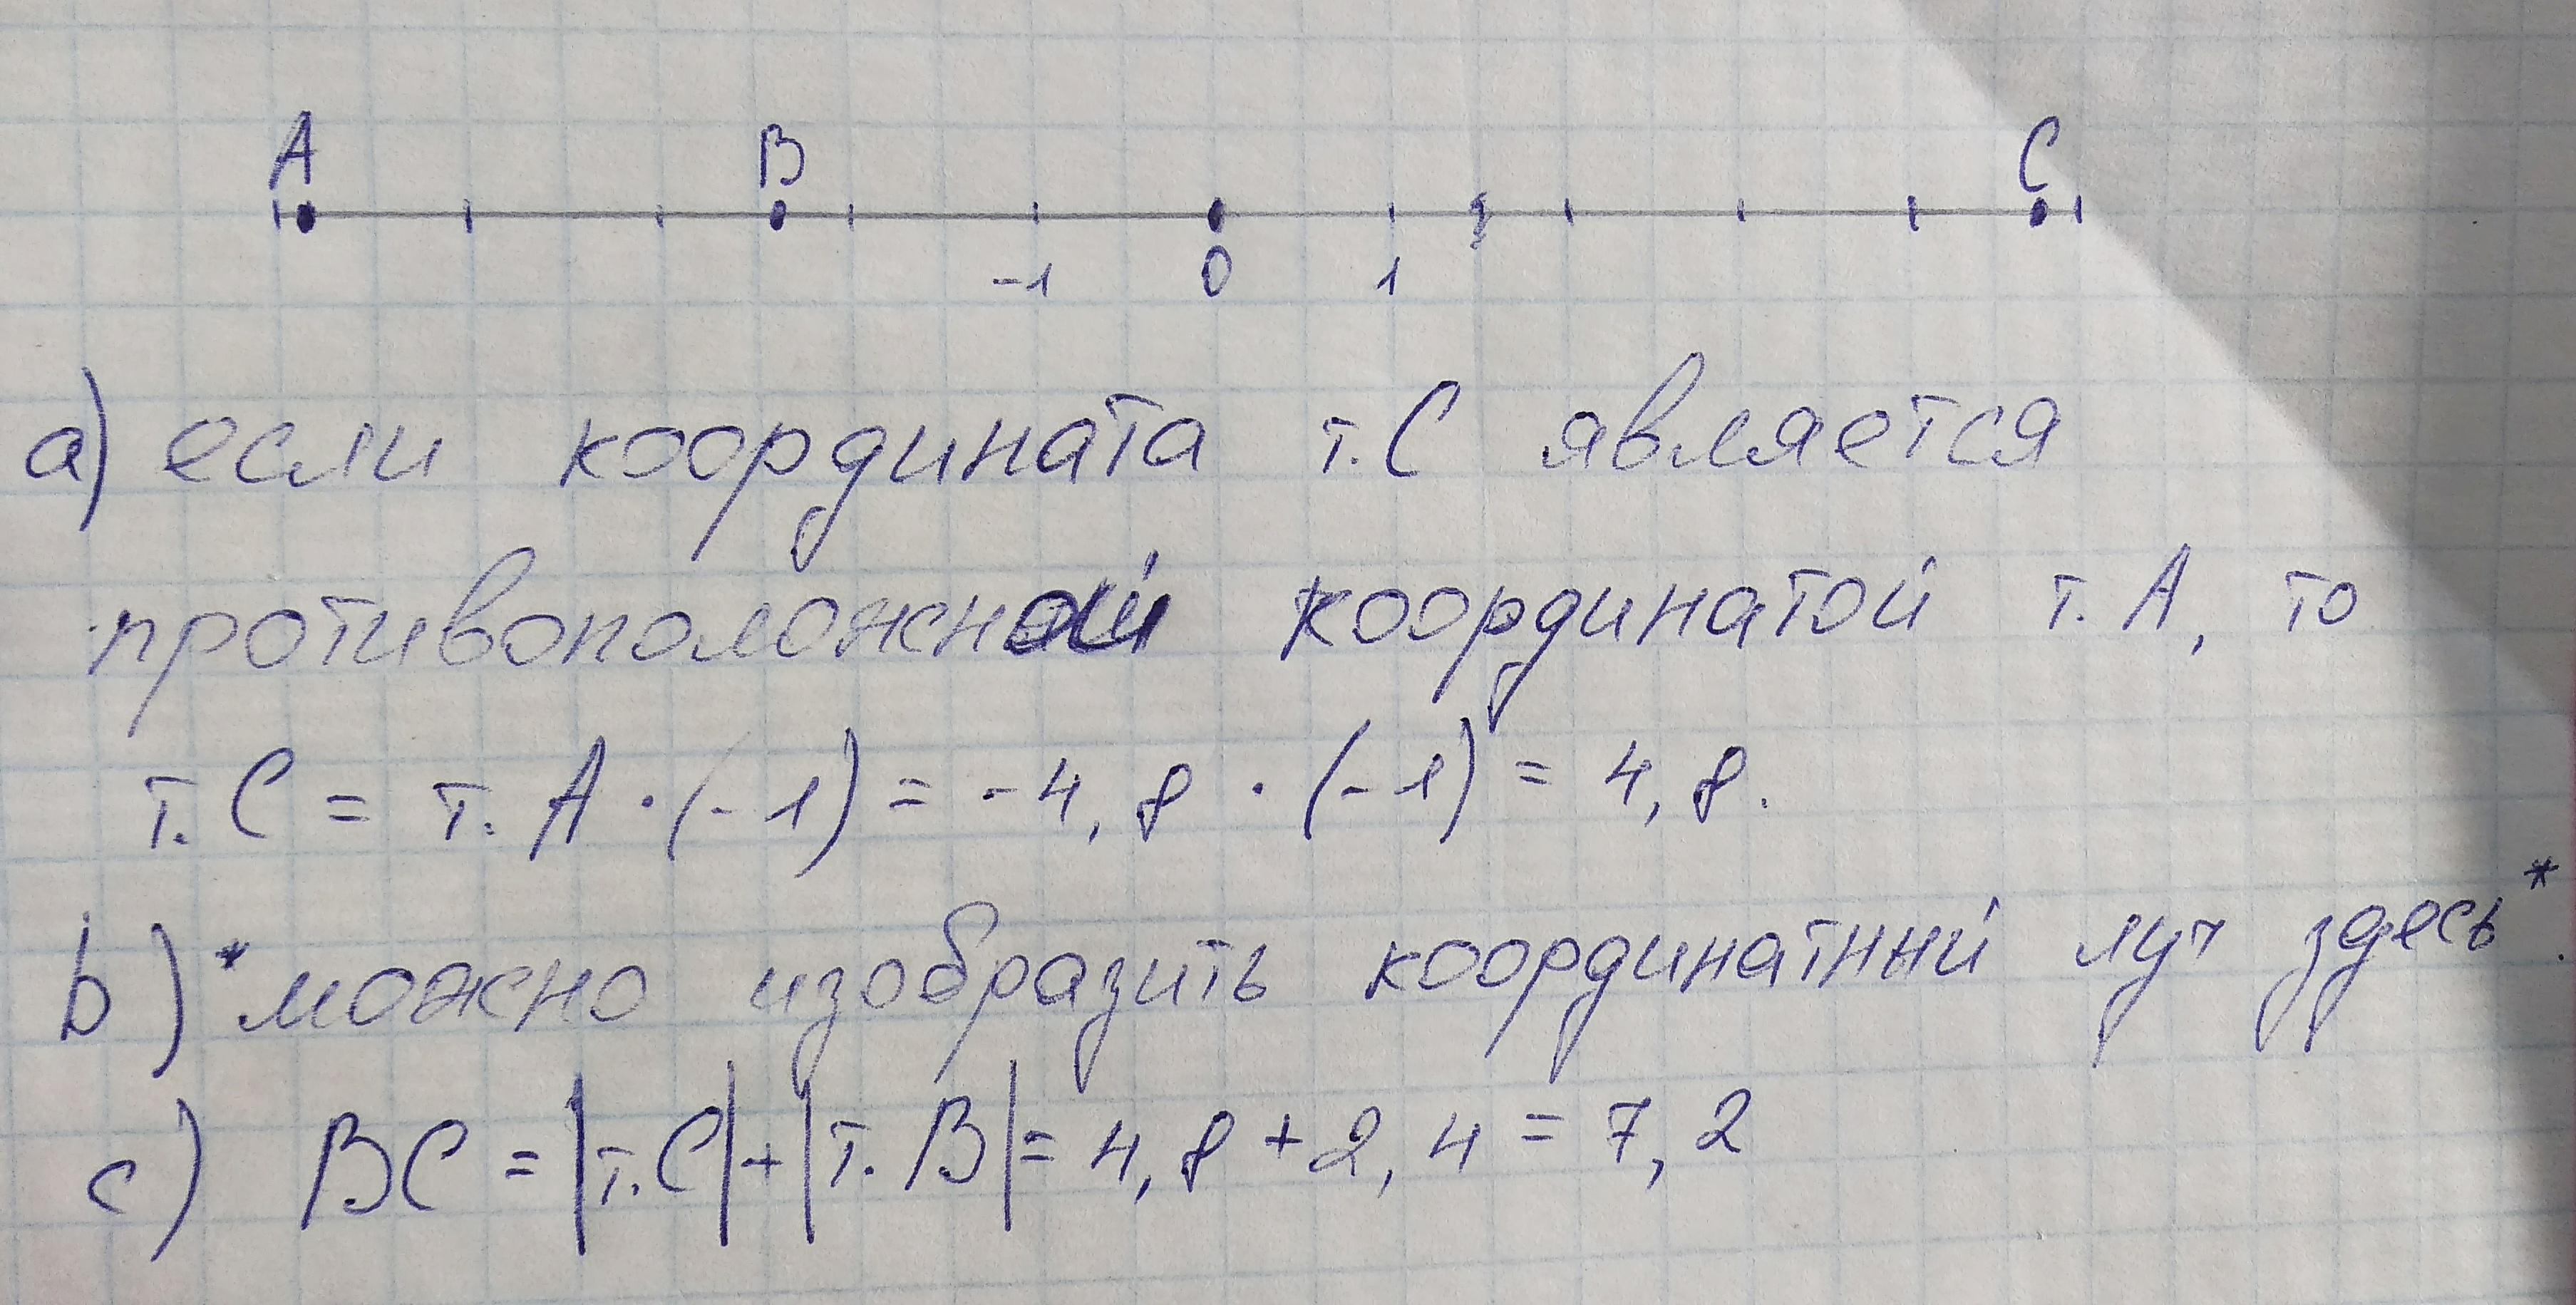 A B C
-1 0 1
a) если координата т. С является
противоположной координатой т. А, то
т. С = т. А · (-1) = -4, 8 · (-1) = 4, 8.
b) *можно изобразить координатный луч здесь*.
c) BC = |т. C| + |т. B| = 4, 8 + 2, 4 = 7, 2